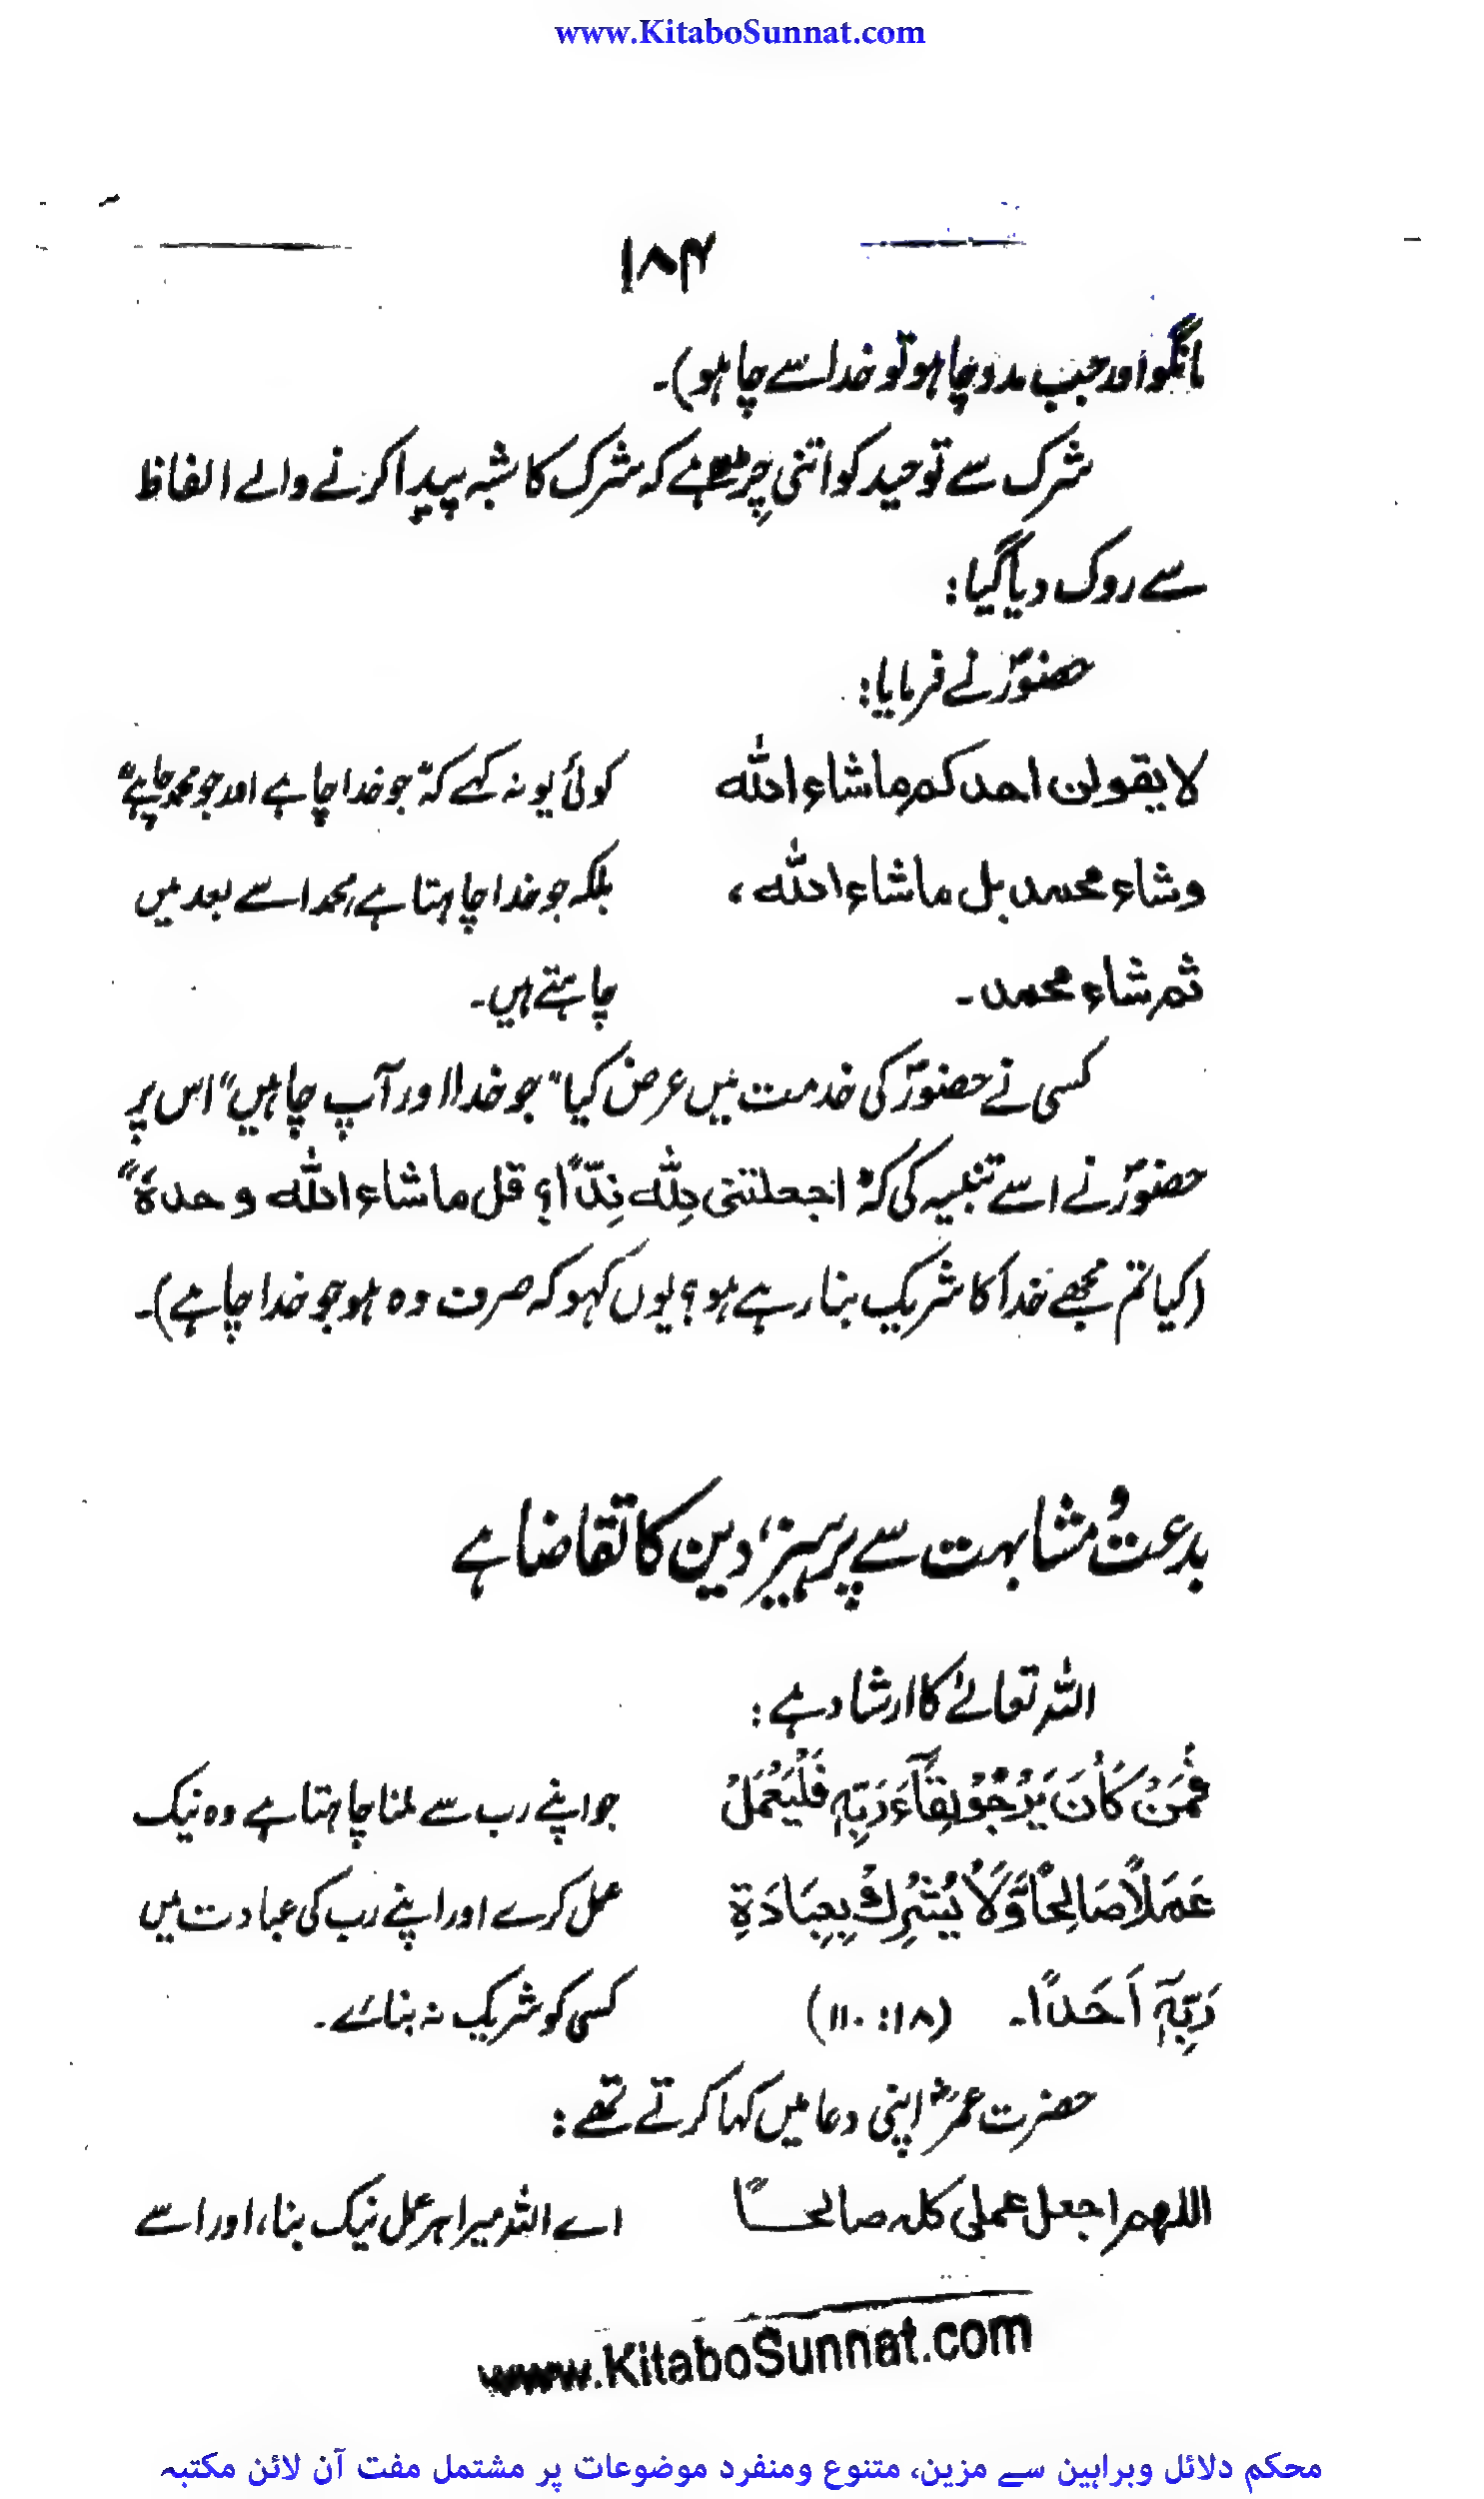 www.KitaboSunnat.com
۱۸۴
مانگو اور جب مدد چاہو تو خدا سے چاہو)۔
شرک سے توحید کو اتنی چِڑ ہے کہ شرک کا شبہ پیدا کرنے والے الفاظ
سے روک دیا گیا:
حضورؐ نے فرمایا:
لا یقولن احدکم ماشاء اللہ
کوئی یو نہ کہے کہ "جو خدا چاہے اور جو محمد چاہے"
وشاء محمد بل ماشاء اللہ،
بلکہ جو خدا چاہتا ہے، محمد اسے بعد میں
ثم شاء محمد۔
چاہتے ہیں۔
کسی نے حضورؐ کی خدمت میں عرض کیا "جو خدا اور آپ چاہیں" اس پر
حضورؐ نے اسے تنبیہ کی کہ "اجعلتنی لِلّٰہ نِدّاً؟ قل ماشاء اللہ وحدہٗ"
(کیا تم مجھے خدا کا شریک بنا رہے ہو؟ یوں کہو کہ صرف وہ ہو جو خدا چاہے)۔
بدعت و مشابہت سے پرہیز، دین کا تقاضا ہے
اللہ تعالےٰ کا ارشاد ہے:
فَمَنْ كَانَ يَرْجُوْ لِقَآءَ رَبِّهٖ فَلْيَعْمَلْ
جو اپنے رب سے ملنا چاہتا ہے وہ نیک
عَمَلًا صَالِحًا وَّلَا يُشْرِكْ بِعِبَادَةِ
عمل کرے اور اپنے رب کی عبادت میں
رَبِّهٖٓ اَحَدًا۔ (۱۸: ۱۱۰)
کسی کو شریک نہ بنائے۔
حضرت عمرؓ اپنی دعا میں کہا کرتے تھے:
اللھم اجعل عملی کلہ صالحًا
اے اللہ میرا ہر عمل نیک بنا، اور اسے
www.KitaboSunnat.com
محکم دلائل وبراہین سے مزین، متنوع ومنفرد موضوعات پر مشتمل مفت آن لائن مکتبہ